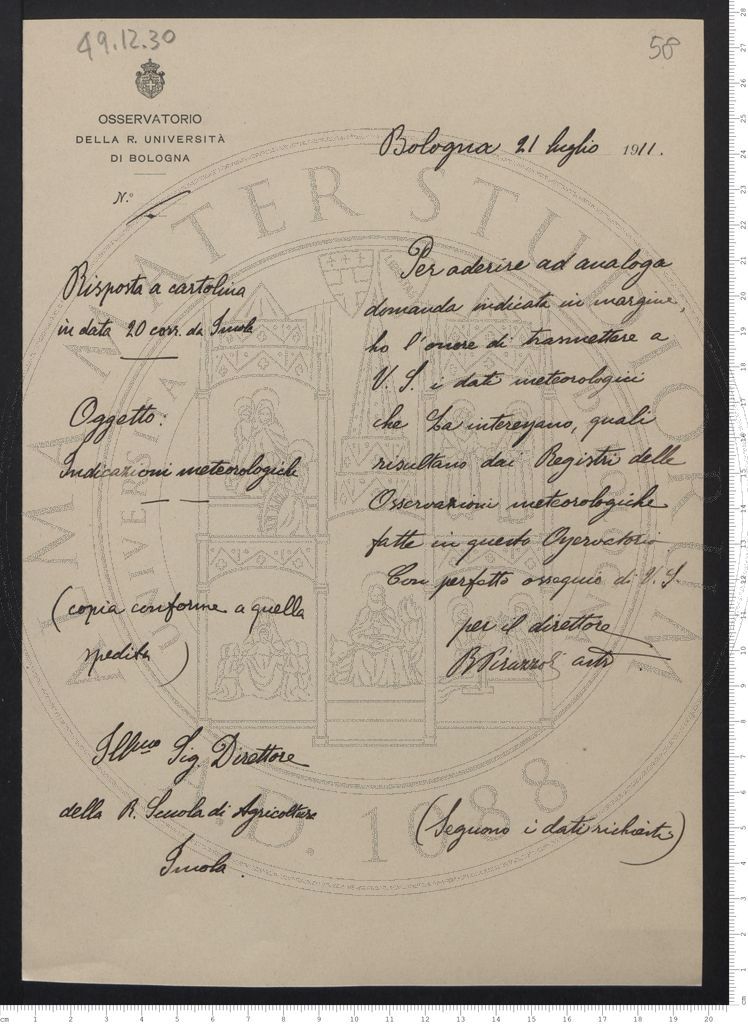 49.12.30
58
OSSERVATORIO
DELLA R. UNIVERSITÀ
DI BOLOGNA
N.º
Bologna 21 luglio 1911.
Risposta a cartolina
in data 20 corr. da Imola
Oggetto:
Indicazioni meteorologiche
(copia conforme a quella
spedita)
Illmo Sig. Direttore
della R. Scuola di Agricoltura
Imola.
Per aderire ad analoga
domanda indicata in margine,
ho l'onore di trasmettere a
V. S. i dati meteorologici
che La interessano, quali
risultano dai Registri delle
Osservazioni meteorologiche
fatte in questo Osservatorio.
Con perfetto ossequio di V. S.
per il direttore
B Pirazzoli astr
(Seguono i dati richiesti)
ALMA MATER STUDIORUM
A.D. 1088